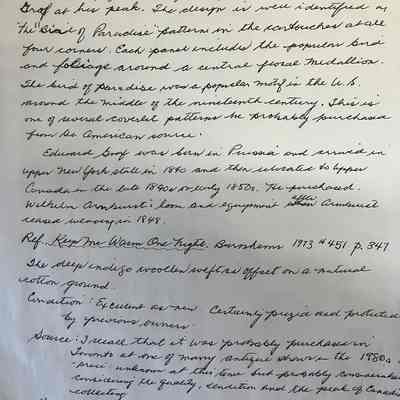 Graf at his peak. The design is well identified by
the "Bird of Paradise" patterns in the cartouches at all
four corners. Each panel includes the popular bird
and foliage around a central floral medallion.
The bird of paradise was a popular motif in the U.S.
around the middle of the nineteenth century. This is
one of several coverlet patterns he probably purchased
from an American source.
Edward Graf was born in Prussia and arrived in
upper New York state in 1840 and then relocated to Upper
Canada in the late 1840s or early 1850s. He purchased
Wilhelm Armbrust's loom and equipment after Armbrust
ceased weaving in 1848.
Ref. Keep Me Warm One Night. Burnhams 1973 #451 p. 347
The deep indigo woollen weft is offset on a natural
cotton ground.
Condition: Excellent as new Certainly prized and protected
by previous owners
Source: I recall that it was probably purchased in
Toronto at one of many antique shows in the 1980s
price unknown at this time but probably considerable
considering the quality, condition and the peak of Canadian
collecting